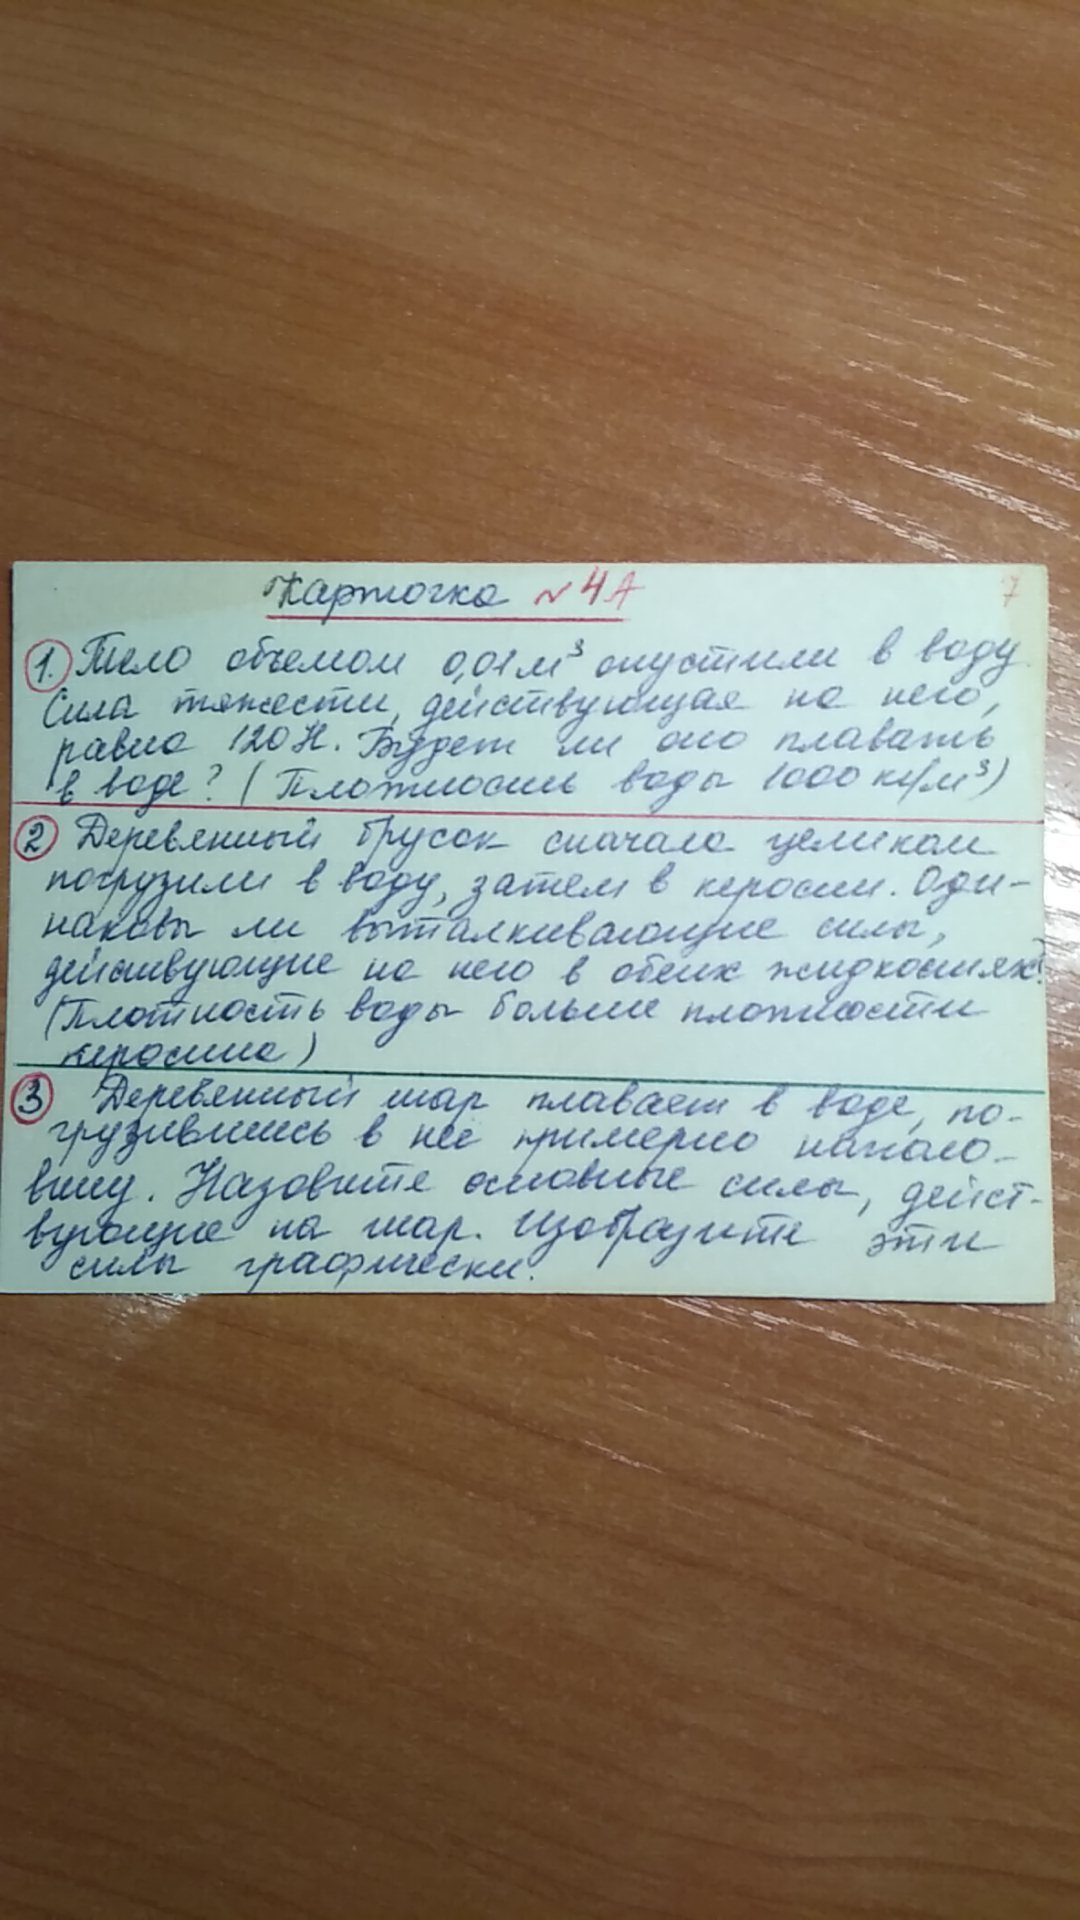 Карточка №4А
7
1. Тело объемом 0,01 м³ опустили в воду.
Сила тяжести, действующая на него,
равна 120 Н. Будет ли оно плавать
в воде? (Плотность воды 1000 кг/м³)
2 Деревянный брусок сначала целиком
погрузили в воду, затем в керосин. Оди-
наковы ли выталкивающие силы,
действующие на него в обеих жидкостях?
(Плотность воды больше плотности
керосина)
3 Деревянный шар плавает в воде, по-
грузившись в неё примерно наполо-
вину. Назовите основные силы, дейст-
вующие на шар. Изобразите эти
силы графически.